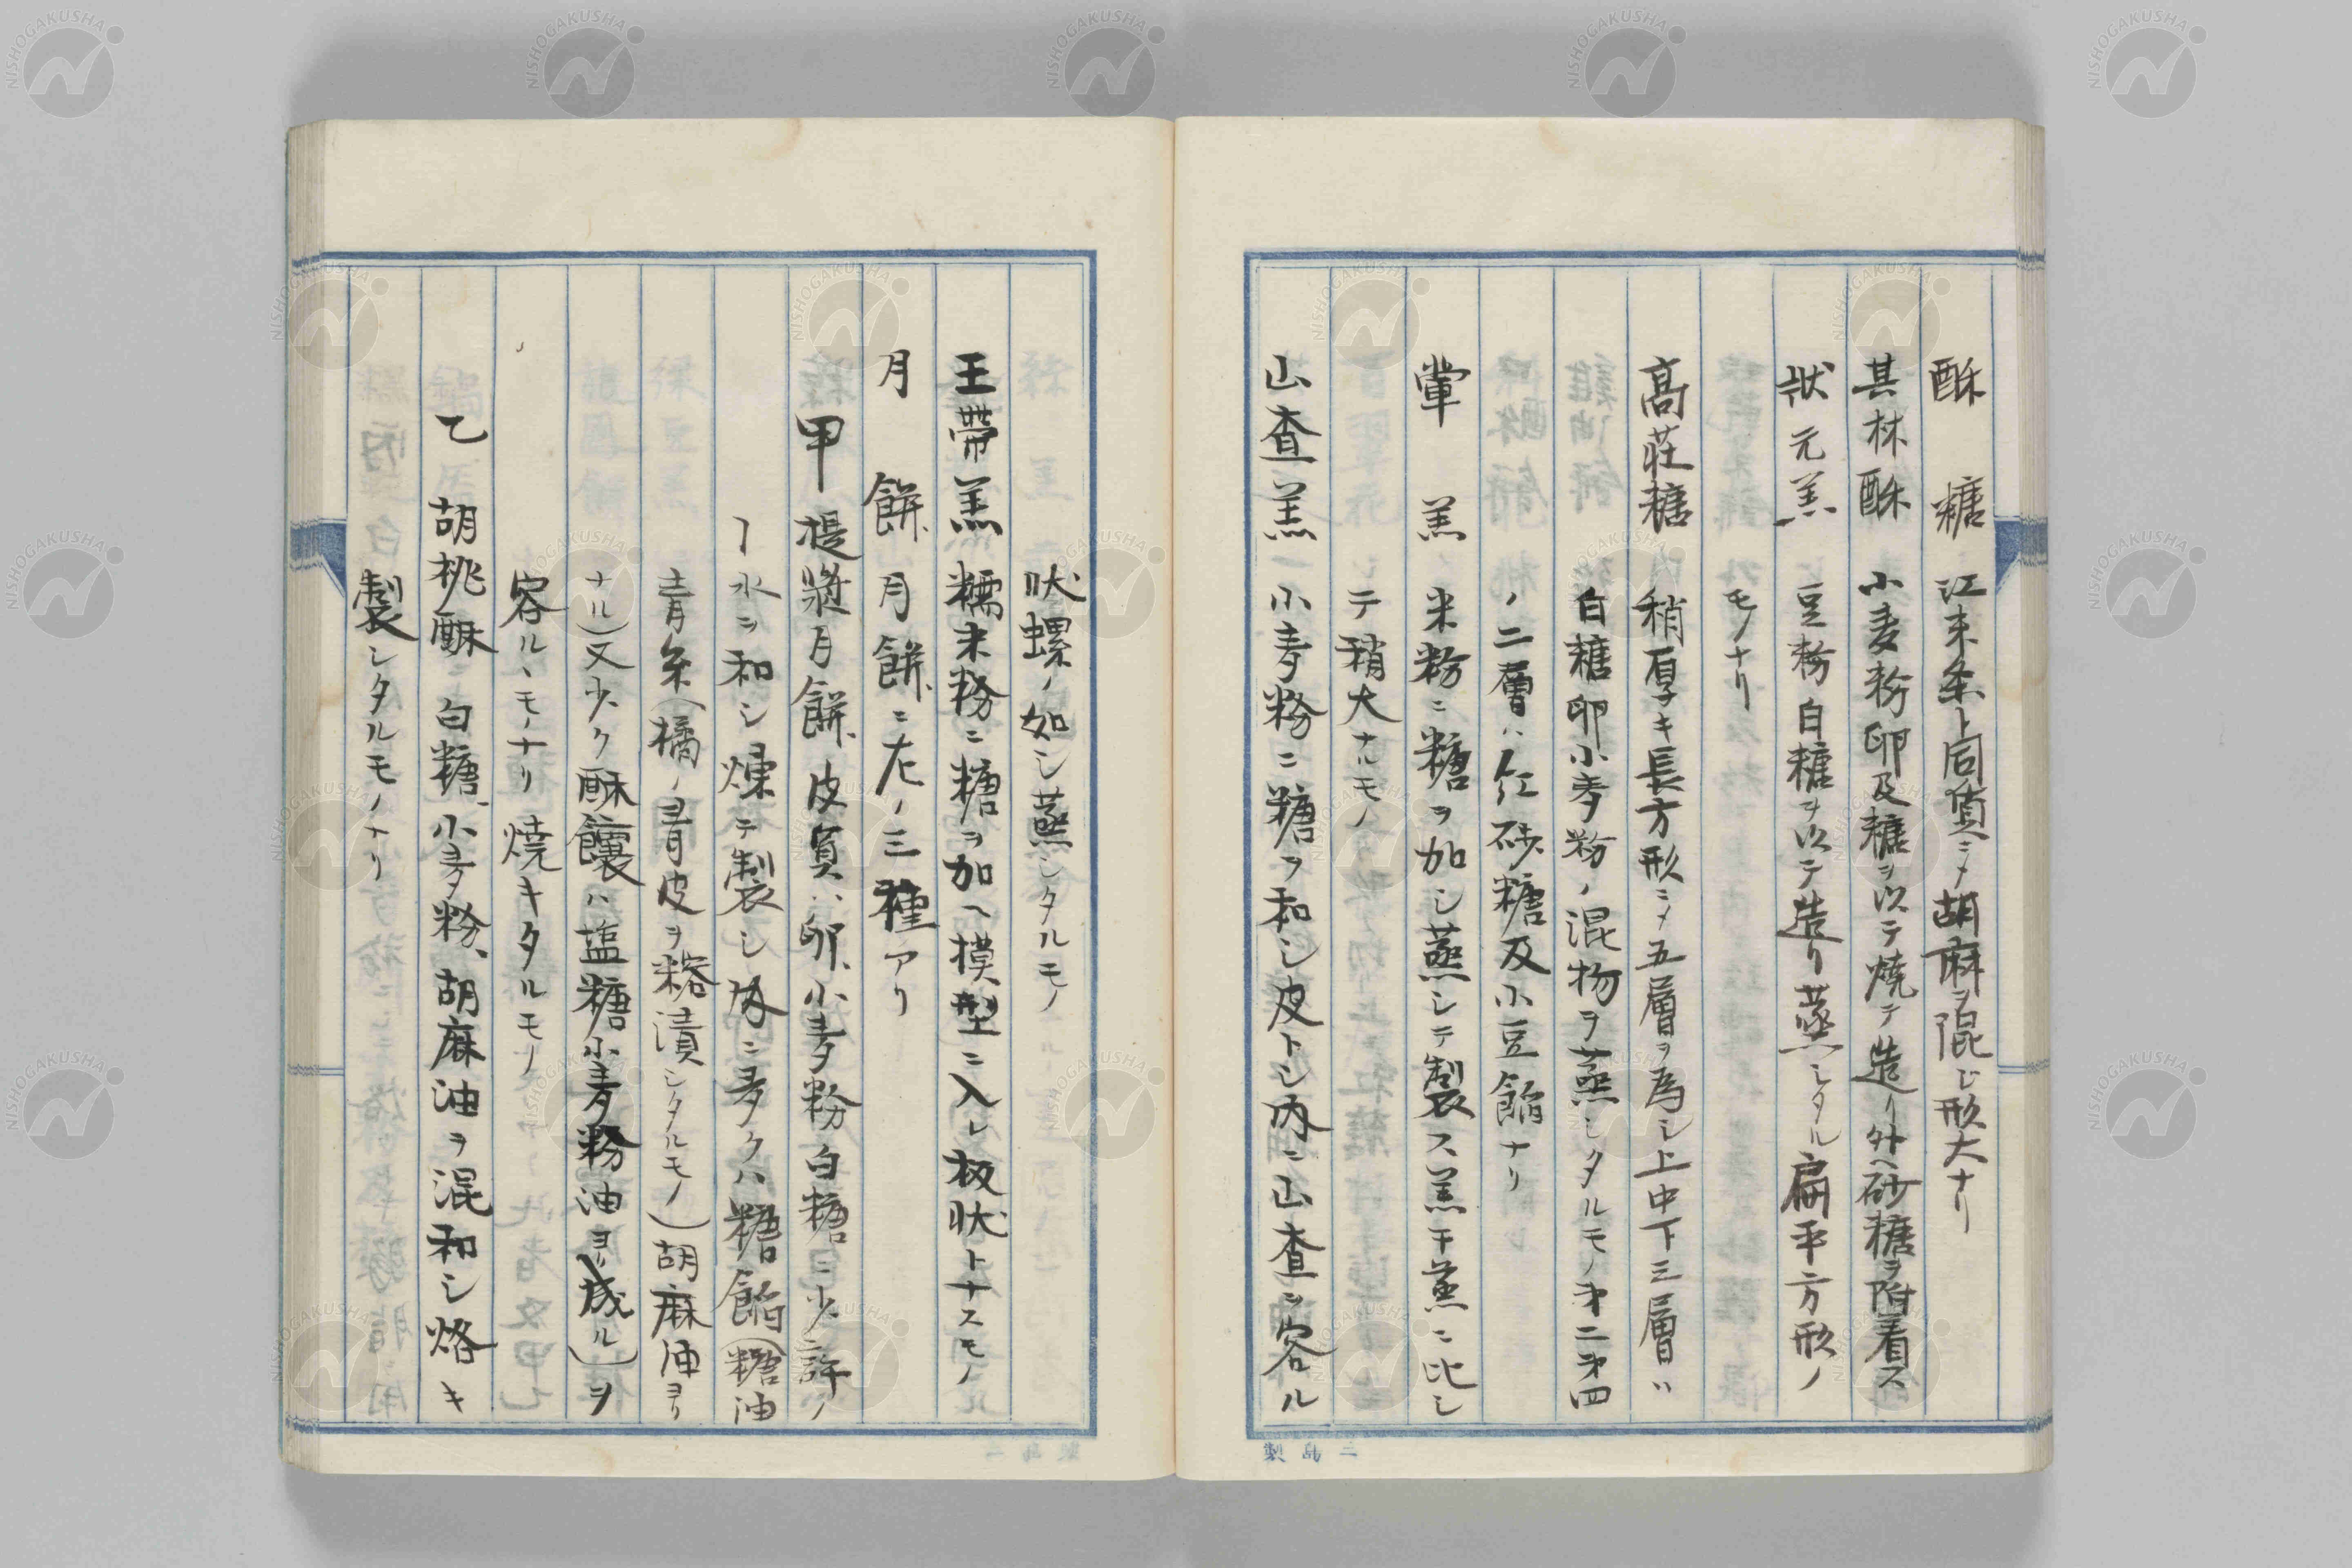 酥糖 江米条ト同質ニメ胡麻ヲ混ジ形大ナリ
其林酥 小麦粉卵及糖ヲ以テ焼テ造リ外ヘ砂糖ヲ附着ス
状元羔 豆粉白糖ヲ以テ造リ蒸シタル扁平方形ノ
モノナリ
高荘糖 稍厚キ長方形ニメ五層ヲ為シ上中下三層ハ
白糖卵小麦粉ノ混物ヲ蒸シタルモノ才二才四
ノ二層ハ紅砂糖及小豆餡ナリ
羔 米粉ニ糖ヲ加シ蒸シテ製ス羔干蒸ニ比シ
テ稍大ナルモノ
山査羔 小麦粉ニ糖ヲ和シ皮トシ内ニ山査ヲ容ル
状螺ノ如シ蒸シタルモノ
玉帯羔 糯米粉ニ糖ヲ加ヘ摸型ニ入レ板状トナスモノ
月餅 月餅ニ左ノ三種アリ
甲 提漿月餅 皮質ハ卵、小麦粉白糖ニ少許ノ
水ヲ和シ煉テ製シ内ニ多クハ糖餡(糖油
青糸(橘ノ青皮ヲ糖漬シタルモノ)胡麻油ヨリ
ナル)又少ク酥饟ハ塩糖小麦粉油ヨリ成ル)ヲ
容ルヽモノナリ焼キタルモノ
乙 胡桃酥ニ白糖、小麦粉、胡麻油ヲ混和シ烙キ
製シタルモノナリ
二島製
NISHOGAKUSHA